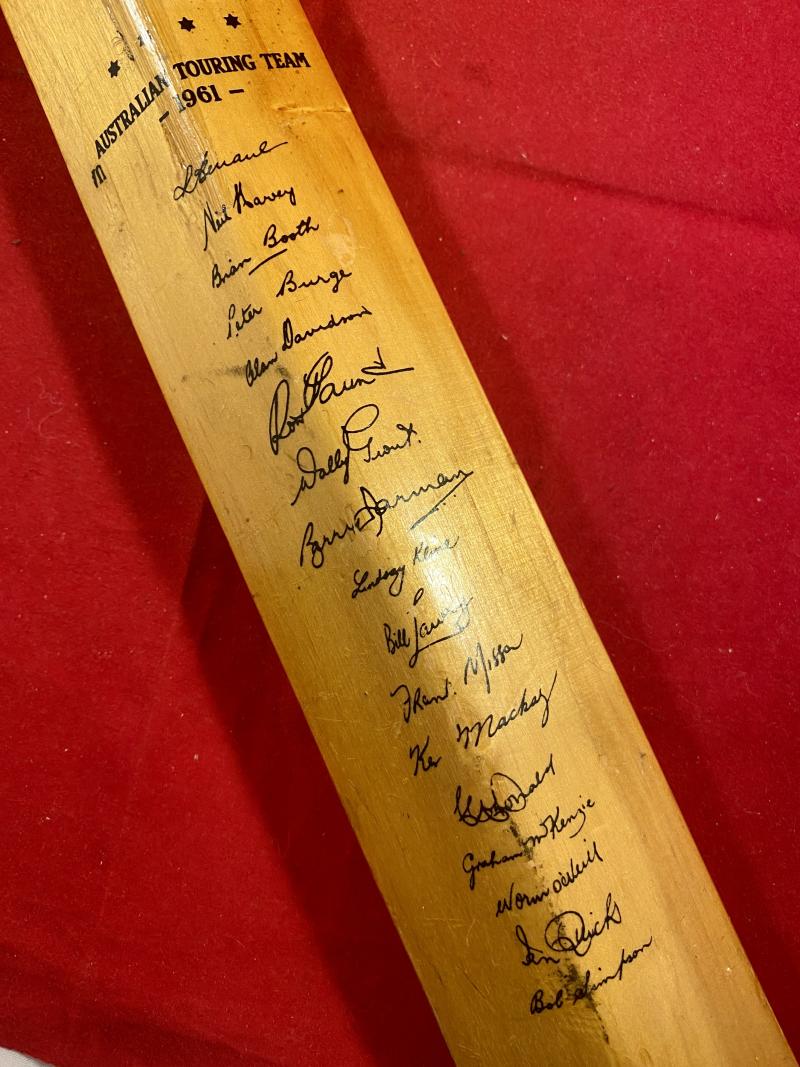 AUSTRALIAN TOURING TEAM
- 1961 -
R Benaud
Neil Harvey
Brian Booth
Peter Burge
Alan Davidson
Ron Gaunt
Wally Grout
Barrie Jarman
Lindsay Kline
Bill Lawry
Frank Misson
Ken Mackay
McDonald
Graham McKenzie
Norm O'Neill
Ian Quick
Bob Simpson